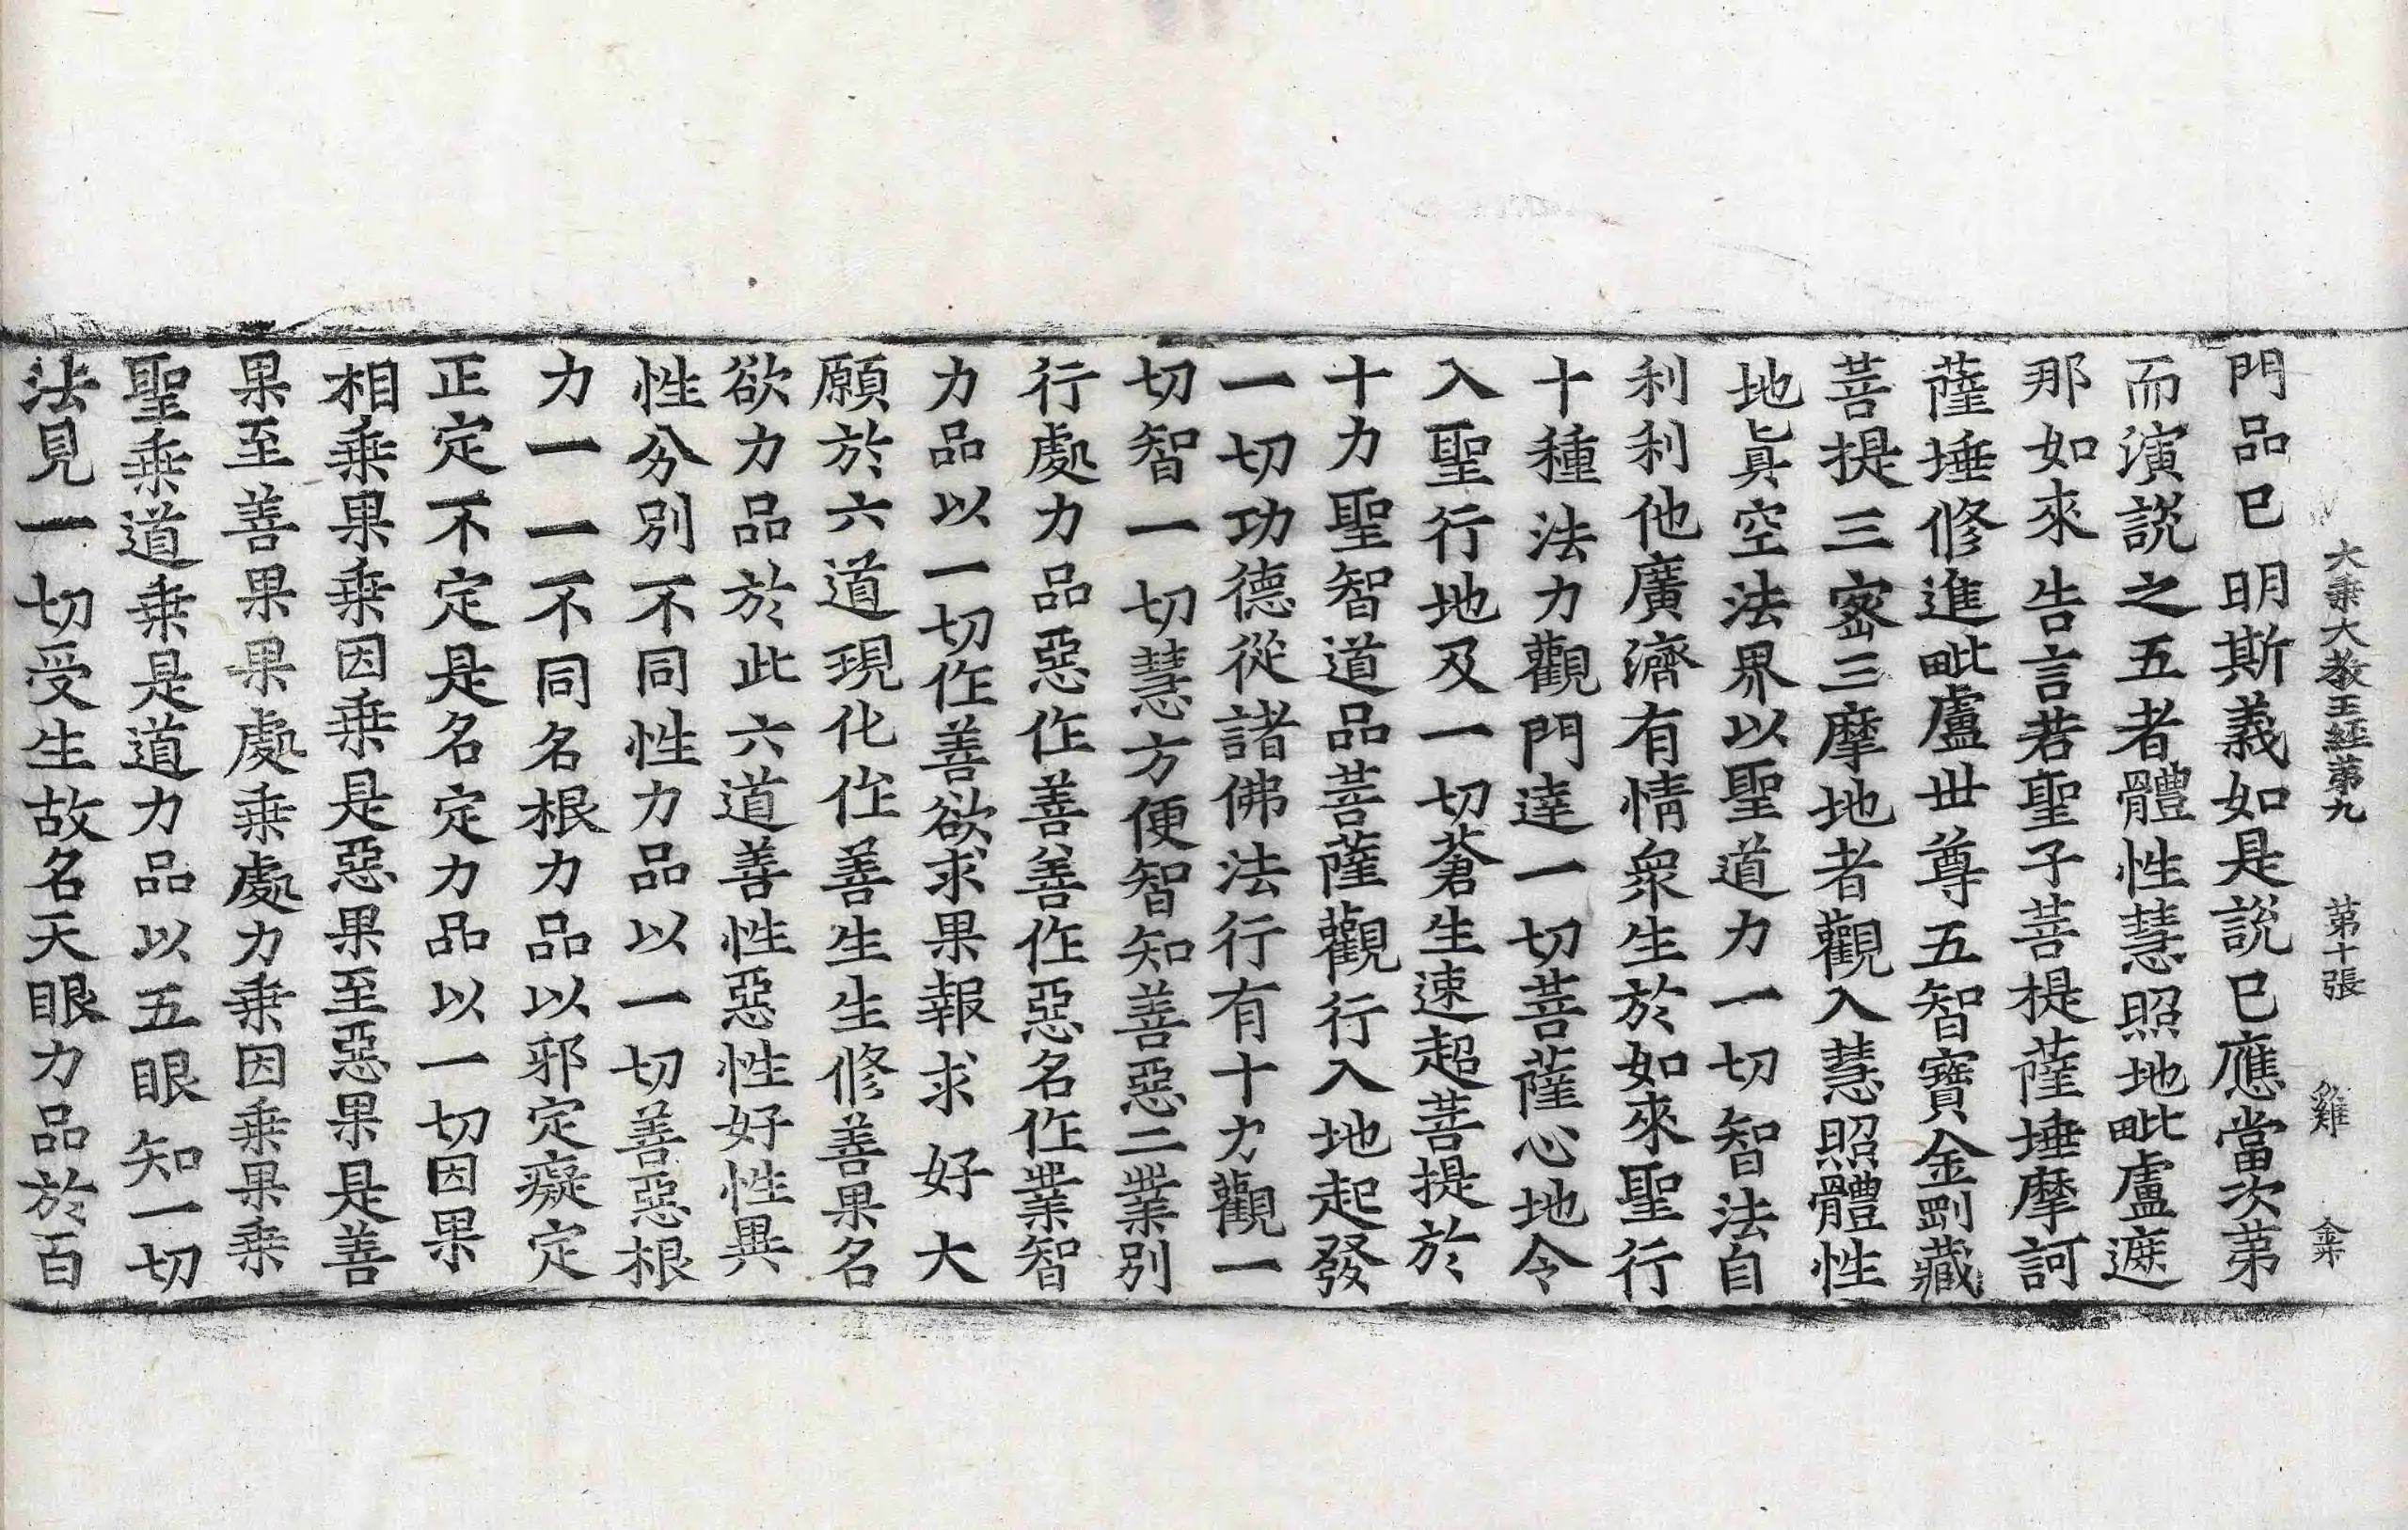 大乘大教王經第九 第十張 雞 金
門品已明斯義如是說已應當次第
而演說之五者體性慧照地毗盧遮
那如來告言若聖子菩提薩埵摩訶
薩埵修進毗盧世尊五智寶金剛藏
菩提三密三摩地者觀入慧照體性
地真空法界以聖道力一切智法自
利利他廣濟有情衆生於如來聖行
十種法力觀門達一切菩薩心地令
入聖行地及一切蒼生速超菩提於
十力聖智道品菩薩觀行入地起發
一切功德從諸佛法行有十力觀一
切智一切慧方便智知善惡二業別
行處力品惡作善善作惡名作業智
力品以一切作善欲求果報求好大
願於六道現化作善生生修善果名
欲力品於此六道善性惡性好性異
性分別不同性力品以一切善惡根
力一一不同名根力品以邪定癡定
正定不定是名定力品以一切因果
相乘果乘因乘是惡果至惡果是善
果至善果果處乘處力乘因乘果乘
聖乘道乘是道力品以五眼知一切
法見一切受生故名天眼力品於百